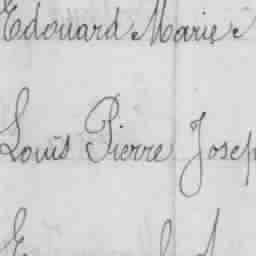 Edouard Marier
Louis Pierre Josep